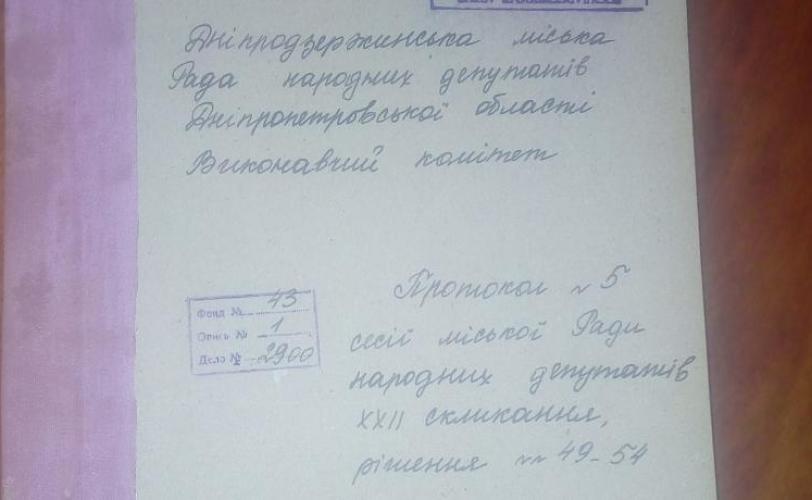 Дніпродзержинська міська
Рада народних депутатів
Дніпропетровської області
Виконавчий комітет
Фонд № 43
Опись № 1
Дело № 2900
Протокол № 5
сесії міської Ради
народних депутатів
XXII скликання,
рішення №№ 49-54